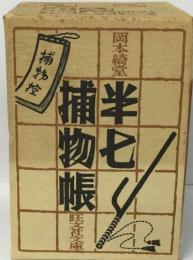 岡本綺堂
半七
捕物帳
旺文社文庫
捕物控